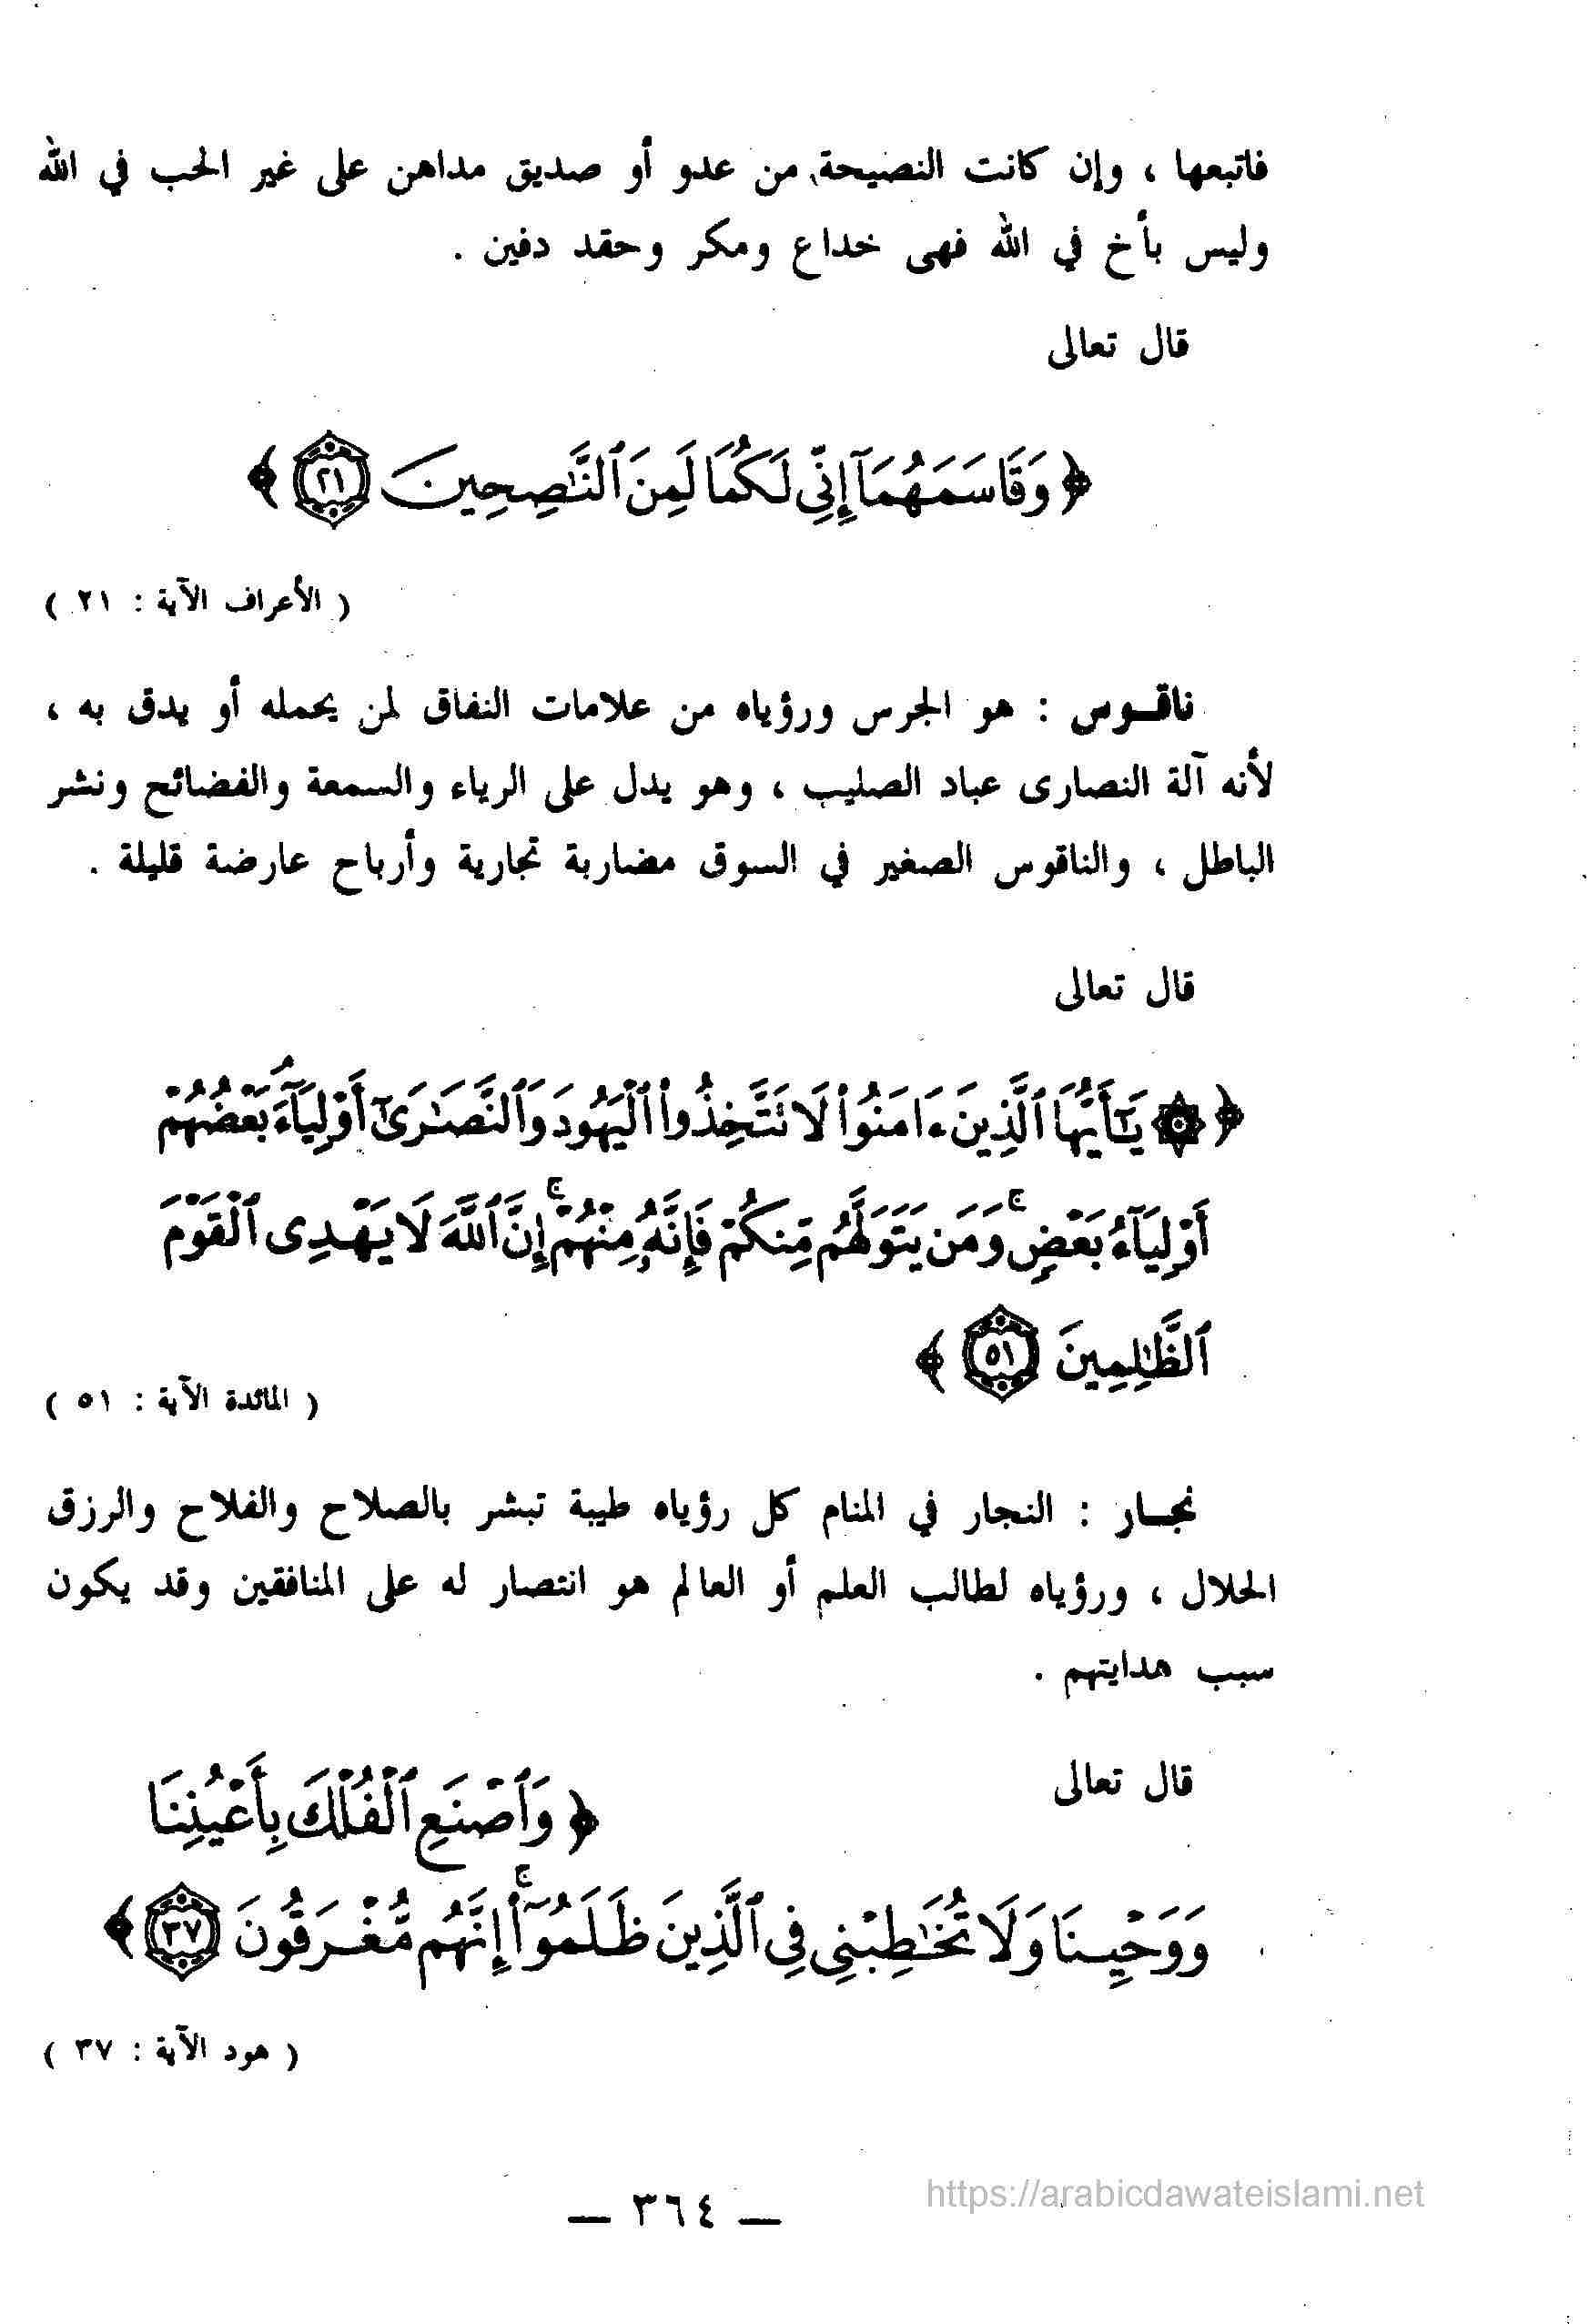 فاتبعها ، وإن كانت النصيحة من عدو أو صديق مداهن على غير الحب في الله
وليس بأخ في الله فهى خداع ومكر وحقد دفين .
قال تعالى
﴿ وَقَاسَمَهُمَآ إِنِّى لَكُمَا لَمِنَ ٱلنَّٰصِحِينَ ٢١ ﴾
( الأعراف الآية : ٢١ )
ناقـوس : هو الجرس ورؤياه من علامات النفاق لمن يحمله أو يدق به ،
لأنه آلة النصارى عباد الصليب ، وهو يدل على الرياء والسمعة والفضائح ونشر
الباطل ، والناقوس الصغير في السوق مضاربة تجارية وأرباح عارضة قليلة .
قال تعالى
﴿ ۞ يَٰٓأَيُّهَا ٱلَّذِينَ ءَامَنُوا۟ لَا تَتَّخِذُوا۟ ٱلْيَهُودَ وَٱلنَّصَٰرَىٰٓ أَوْلِيَآءَ ۘ بَعْضُهُمْ
أَوْلِيَآءُ بَعْضٍ ۚ وَمَن يَتَوَلَّهُم مِّنكُمْ فَإِنَّهُۥ مِنْهُمْ ۗ إِنَّ ٱللَّهَ لَا يَهْدِى ٱلْقَوْمَ
ٱلظَّٰلِمِينَ ٥١ ﴾
( المائدة الآية : ٥١ )
نجـار : النجار في المنام كل رؤياه طيبة تبشر بالصلاح والفلاح والرزق
الحلال ، ورؤياه لطالب العلم أو العالم هو انتصار له على المنافقين وقد يكون
سبب هدايتهم .
قال تعالى ﴿ وَٱصْنَعِ ٱلْفُلْكَ بِأَعْيُنِنَا
وَوَحْيِنَا وَلَا تُخَٰطِبْنِى فِى ٱلَّذِينَ ظَلَمُوٓا۟ ۚ إِنَّهُم مُّغْرَقُونَ ٣٧ ﴾
( هود الآية : ٣٧ )
— ٣٦٤ —
https://arabicdawateislami.net